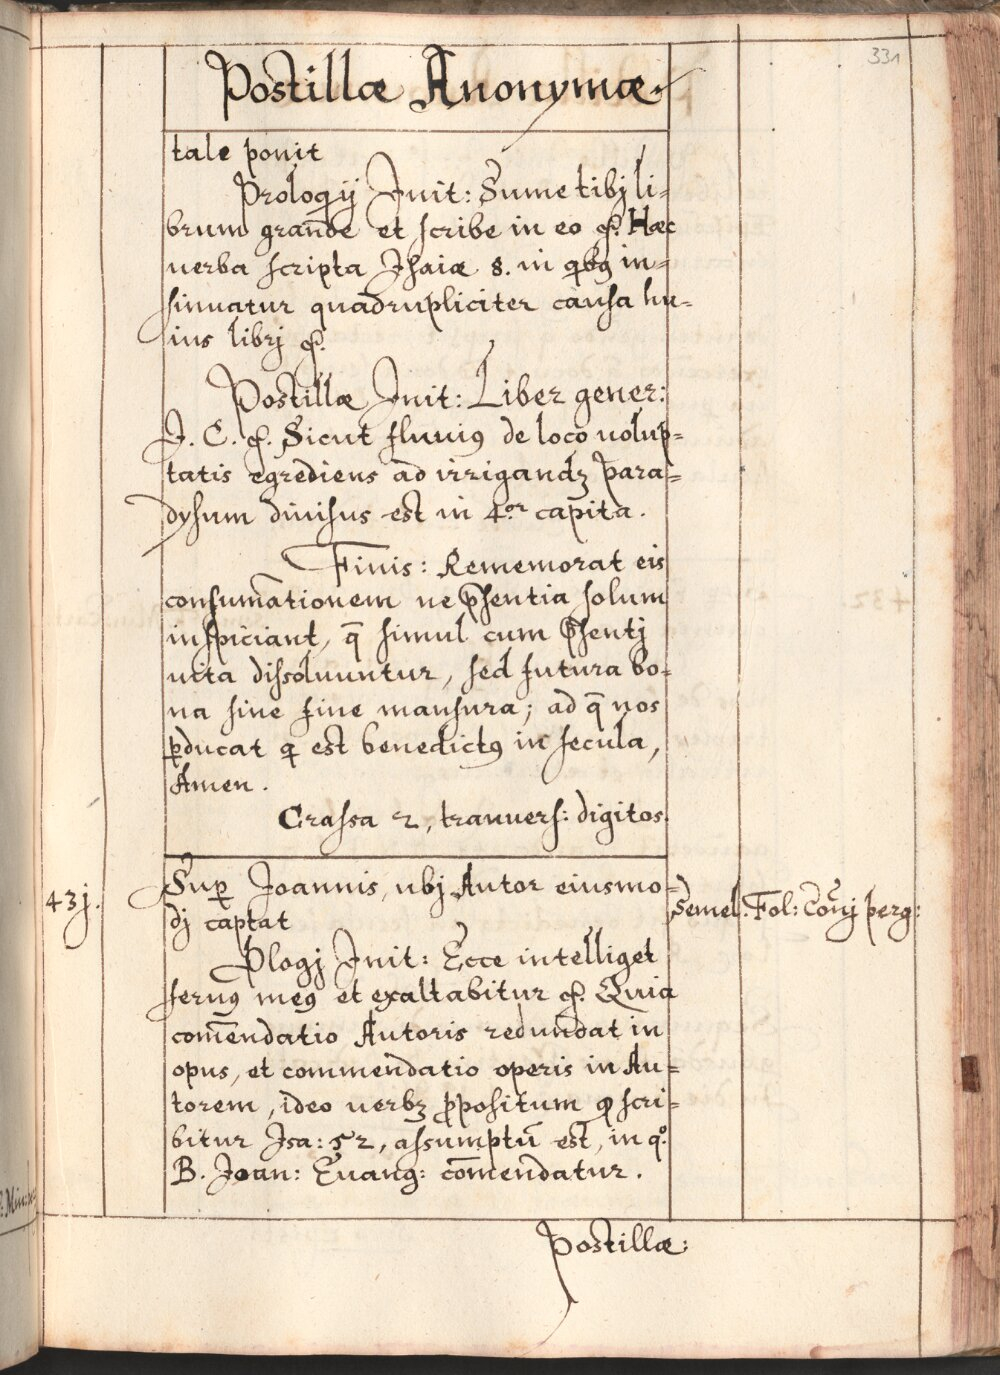 331
Postillæ Anonymæ.
tale ponit
Prologij Init: Sume tibj li=
brum grande et scribe in eo &. Hæc
uerba scripta Isaiæ 8. in qbꝫ in=
sinuatur quadrupliciter causa hu=
ius librj &.
Postillæ Init: Liber gener:
J. C. &. Sicut fluuiꝰ de loco uolup=
tatis egrediens ad irrigandꝫ Para=
dysum diuisus est in 4or capita.
Finis: Rememorat eis
consumãtionem ne p̃sentia solum
inspiciant, q̃ simul cum p̃sentj
uita dissoluuntur, sed futura bo=
na sine fine mansura; ad q̃ nos
ꝑducat q est benedictꝰ in secula,
Amen.
Crassa 2, tranuers: digitos.
43j. Suꝑ Joannis, ubj Autor eiusmo= Semel. Fol: Cõuj perg:
dj captat
Plogj Init: Ecce intelliget
seruꝰ meꝰ et exaltabitur &. Quia
com̃endatio Autoris redundat in
opus, et commendatio operis in Au=
torem, ideo uerbꝫ p̃positum q scri=
bitur Isa: 52, assumptũ est, in qo.
B. Joan: Euang: com̃endatur.
Postillæ: